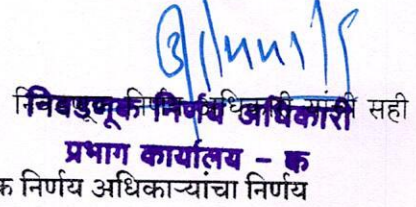 निवडणूक निर्णय अधिकारी यांची सही
निवडणूक निर्णय अधिकारी
प्रभाग कार्यालय - क
क निर्णय अधिकाऱ्यांचा निर्णय